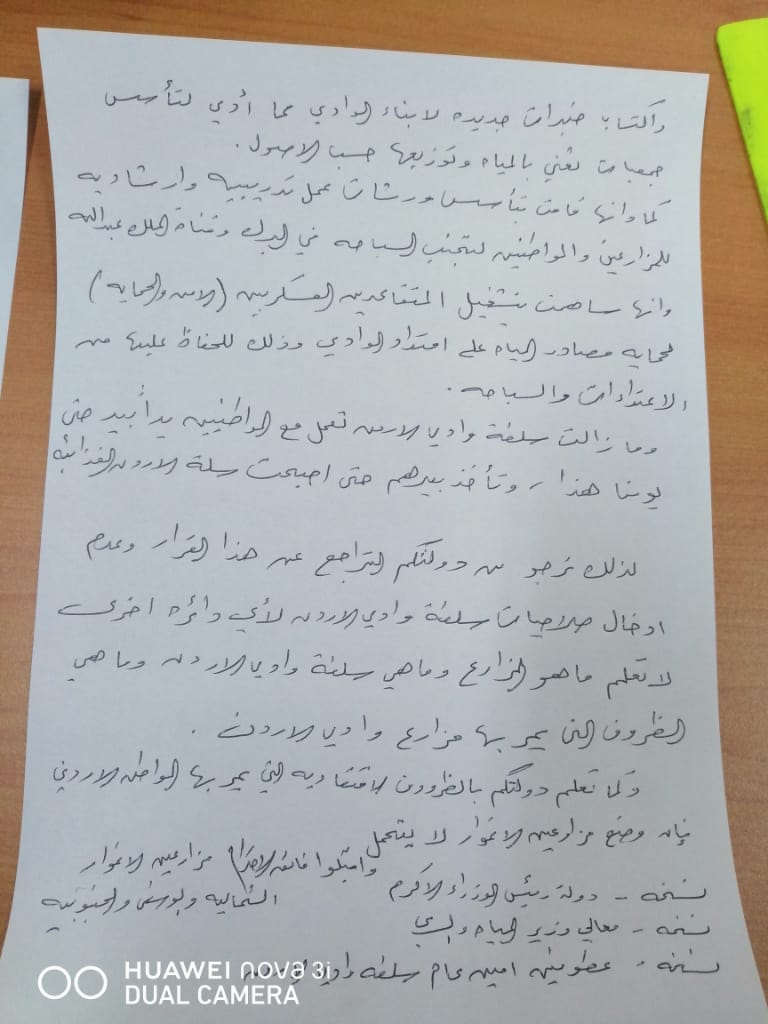 واكتسابا خبرات جديده لابناء الوادي مما أدي لتأسس
جمعيات تعني بالمياه وتوزيعها حسب الاصول .
كما وانها قامت بتأسس ورشات عمل تدريبيه وارشاديه
للمزارعين والمواطنين لتجنب السباحه في البرك وقناة الملك عبدالله
وانها ساهمت بتشغيل المتقاعدين العسكريين (الامن والحمايه)
لحمايه مصادر المياه على امتداد الوادي وذلك للحفاظ عليها من
الاعتداءات والسباحه .
وما زالت سلطة وادي الاردن تعمل مع المواطنيين يداً بيد حتى
يومنا هذا ، وتأخذ بيدهم حتى اصبحت سلة الاردن الغذائيه
لذلك نرجو من دولتكم التراجع عن هذا القرار وعدم
ادخال صلاحيات سلطة وادي الاردن لأي دائره اخرى
لا تعلم ما هو المزارع وماهي سلطة وادي الاردن وما هي
الظروف التي يمر بها مزارع وادي الاردن .
وكما تعلم دولتكم بالظروف الاقتصاديه التي يمر بها المواطن الاردني
فإن وضع مزارعين الاغوار لا يتحمل
واقبلوا فائق الاحترام مزارعين الاغوار
الشماليه والوسطى والجنوبيه
نسخه - دولة رئيس الوزراء الاكرم
نسخه - معالي وزير المياه والري
نسخه - عطوفة امين عام سلطه وادي الاردن
HUAWEI nova 3i
DUAL CAMERA